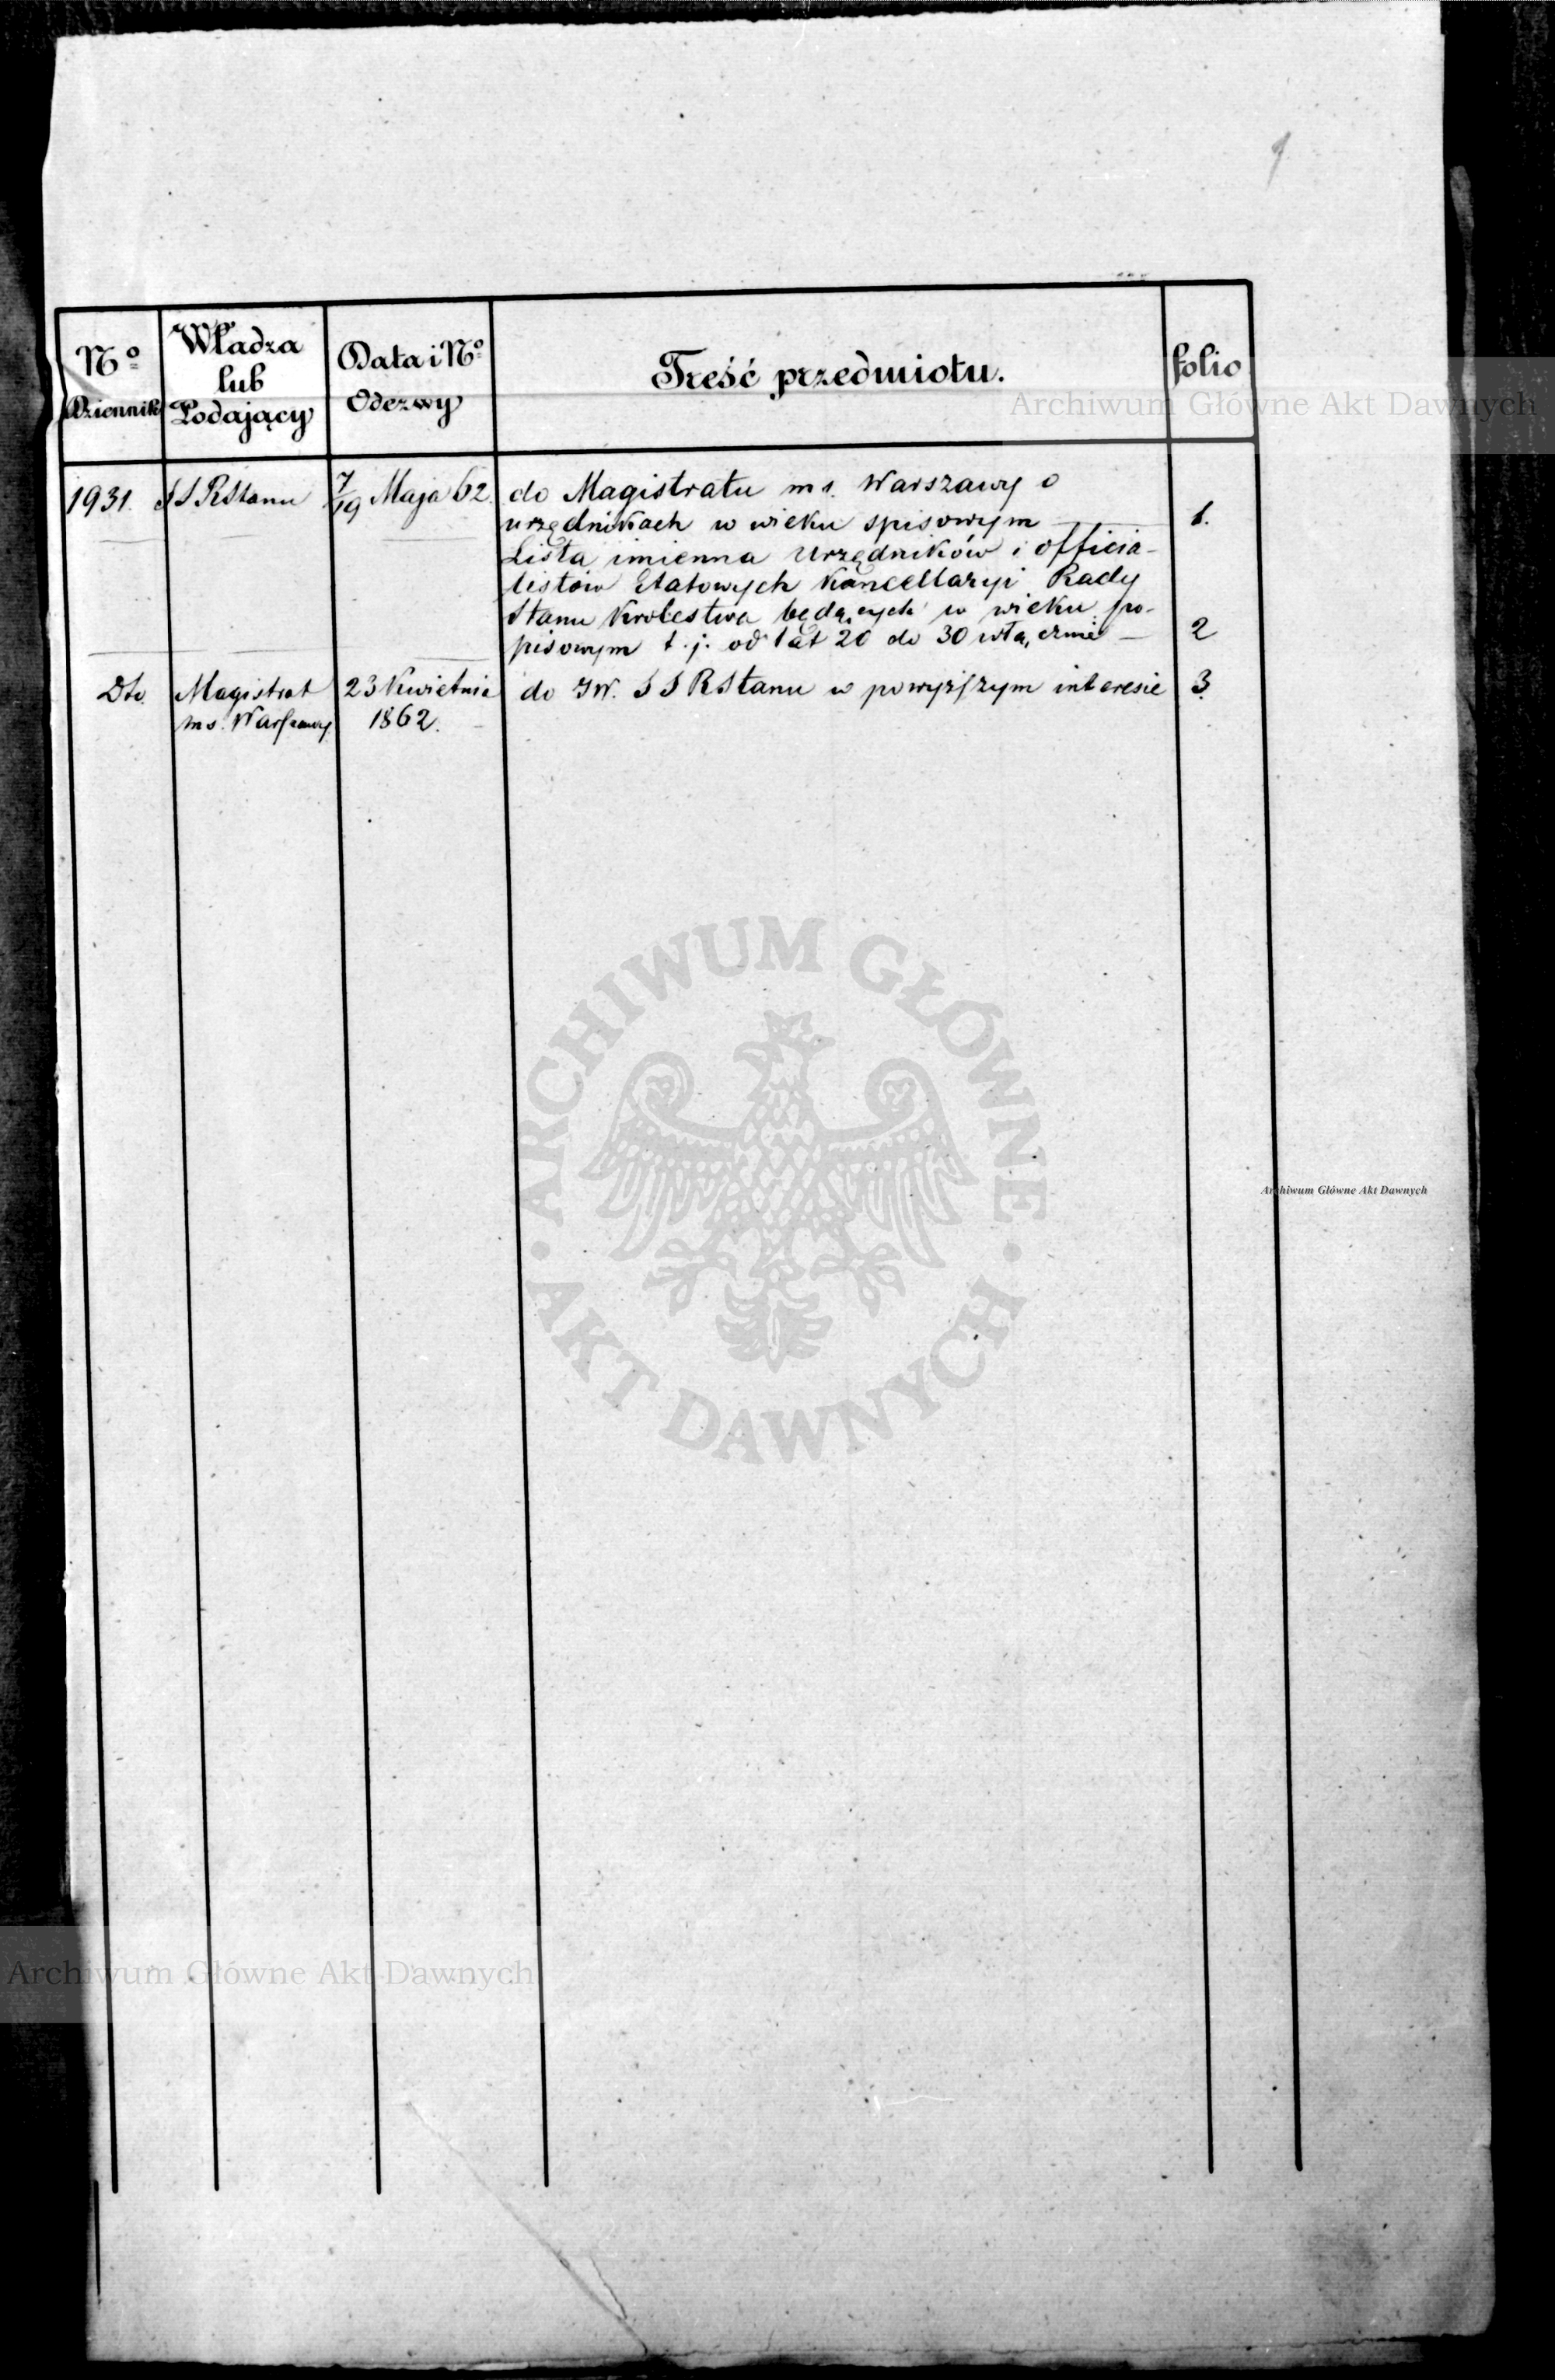 Nº Dziennik
Władza
lub
Podający
Data i Nº
Odezwy
Treść przedmiotu.
folio
1931. SS RStanu 7/19 Maja 62. do Magistratu ms. Warszawy o
urzędnikach w wieku spisowym 1.
Lista imienna Urzędników i officia-
listów Etatowych Kancellaryi Rady
Stanu Krolestwa będących w wieku po-
pisowym t. j. od lat 20 do 30 włącznie — 2
Dto. Magistrat 23 Kwietnia do JW. SS RStanu w powyższym interesie 3.
ms. Warszawy 1862.
Archiwum Główne Akt Dawnych
ARCHIWUM GŁÓWNE
AKT DAWNYCH
Archiwum Główne Akt Dawnych
Archiwum Główne Akt Dawnych